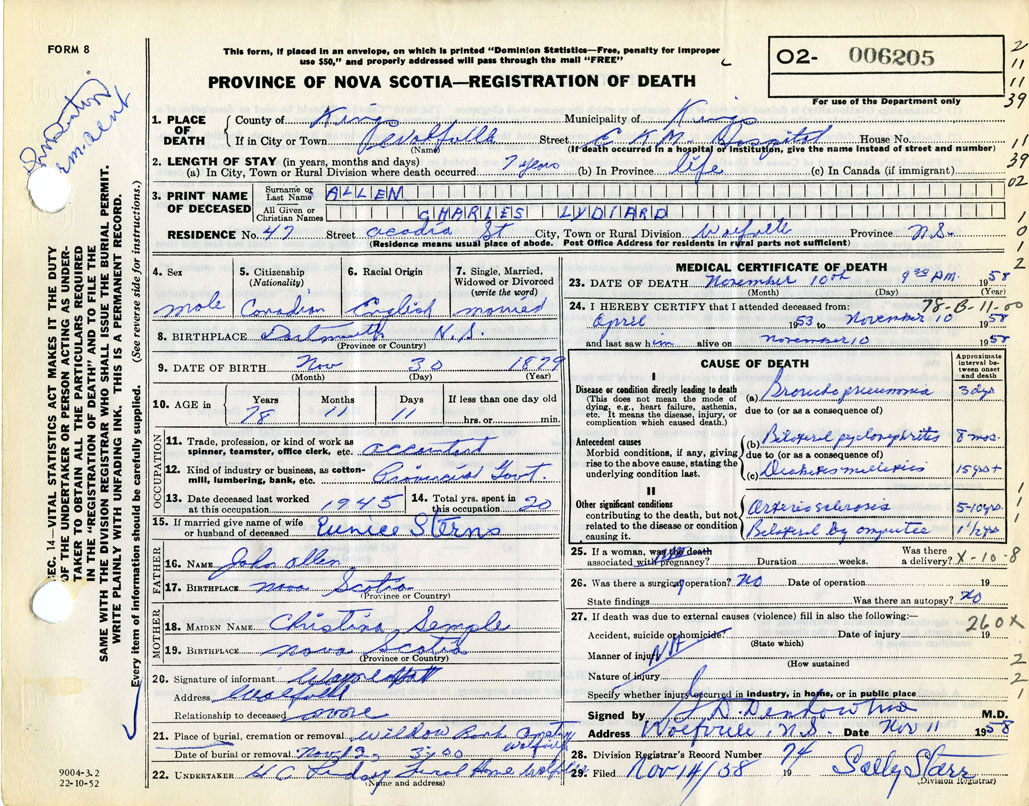 FORM 8
This form, if placed in an envelope, on which is printed "Dominion Statistics—Free, penalty for improper
use $50," and properly addressed will pass through the mail "FREE"
PROVINCE OF NOVA SCOTIA—REGISTRATION OF DEATH
02- 006205
For use of the Department only
2
11
11
39
11
39
02
1
0
1
2
1. PLACE OF DEATH
County of Kings Municipality of Kings
If in City or Town Wolfville Street E.K.M. Hospital House No.
(Name) (If death occurred in a hospital or institution, give the name instead of street and number)
2. LENGTH OF STAY (in years, months and days)
(a) In City, Town or Rural Division where death occurred 7 years (b) In Province life (c) In Canada (if immigrant)
3. PRINT NAME OF DECEASED
Surname or Last Name ALLEN
All Given or Christian Names CHARLES LYDIARD
RESIDENCE No. 47 Street Acadia St City, Town or Rural Division Wolfville Province N.S.
(Residence means usual place of abode. Post Office Address for residents in rural parts not sufficient)
4. Sex male
5. Citizenship (Nationality) Canadian
6. Racial Origin English
7. Single, Married, Widowed or Divorced (write the word) married
8. BIRTHPLACE Dartmouth N.S.
(Province or Country)
9. DATE OF BIRTH Nov 30 1879
(Month) (Day) (Year)
10. AGE in Years 78 Months 11 Days 11 If less than one day old
hrs. or min.
OCCUPATION
11. Trade, profession, or kind of work as spinner, teamster, office clerk, etc. accountant
12. Kind of industry or business, as cotton-mill, lumbering, bank, etc. Provincial Govt.
13. Date deceased last worked at this occupation 1945
14. Total yrs. spent in this occupation 20
15. If married give name of wife or husband of deceased Eunice Sterns
FATHER
16. NAME John Allen
17. BIRTHPLACE Nova Scotia
(Province or Country)
MOTHER
18. MAIDEN NAME Christina Semple
19. BIRTHPLACE Nova Scotia
(Province or Country)
20. Signature of informant
Address Wolfville
Relationship to deceased
21. Place of burial, cremation or removal Willow Bank Wolfville
Date of burial or removal Nov. 12, 3:00
22. UNDERTAKER H.C. Lindsay Funeral Home Wolfville
(Name and address)
MEDICAL CERTIFICATE OF DEATH
23. DATE OF DEATH November 10th 9 30 AM. 1958
(Month) (Day) (Year)
24. I HEREBY CERTIFY that I attended deceased from: 78-B-11-00
April 1953 to November 10 1958
and last saw him alive on november 10 1958
CAUSE OF DEATH
Approximate interval between onset and death
I
Disease or condition directly leading to death
(This does not mean the mode of dying, e.g., heart failure, asthenia, etc. It means the disease, injury, or complication which caused death.)
(a) Broncho pneumonia 3 dys
due to (or as a consequence of)
Antecedent causes
Morbid conditions, if any, giving rise to the above cause, stating the underlying condition last.
(b) Bilateral pyelonephritis 8 mos.
due to (or as a consequence of)
(c) Diabetes mellitus 15 yrs +
II
Other significant conditions contributing to the death, but not related to the disease or condition causing it.
Arteriosclerosis 5-10 yrs.
Bilateral leg amputee 1 1/2 yrs
1
1
1
25. If a woman, was the death associated with pregnancy? Duration weeks. Was there a delivery? X-10-8
26. Was there a surgical operation? No Date of operation 19
State findings Was there an autopsy? No
27. If death was due to external causes (violence) fill in also the following:— 260X
Accident, suicide or homicide? Date of injury 19
(State which)
Manner of injury NA
(How sustained
Nature of injury
Specify whether injury occurred in industry, in home, or in public place
2
2
1
Signed by M.D.
Address Wolfville, N.S. Date Nov 11 1958
28. Division Registrar's Record Number 74
29. Filed Nov 14/58 19 Sally Starr
(Division Registrar)
SEC. 14—VITAL STATISTICS ACT MAKES IT THE DUTY
OF THE UNDERTAKER OR PERSON ACTING AS UNDER-
TAKER TO OBTAIN ALL THE PARTICULARS REQUIRED
IN THE "REGISTRATION OF DEATH" AND TO FILE THE
SAME WITH THE DIVISION REGISTRAR WHO SHALL ISSUE THE BURIAL PERMIT.
WRITE PLAINLY WITH UNFADING INK. THIS IS A PERMANENT RECORD.
Every item of information should be carefully supplied. (See reverse side for instructions.)
9004-3.2
22-10-52